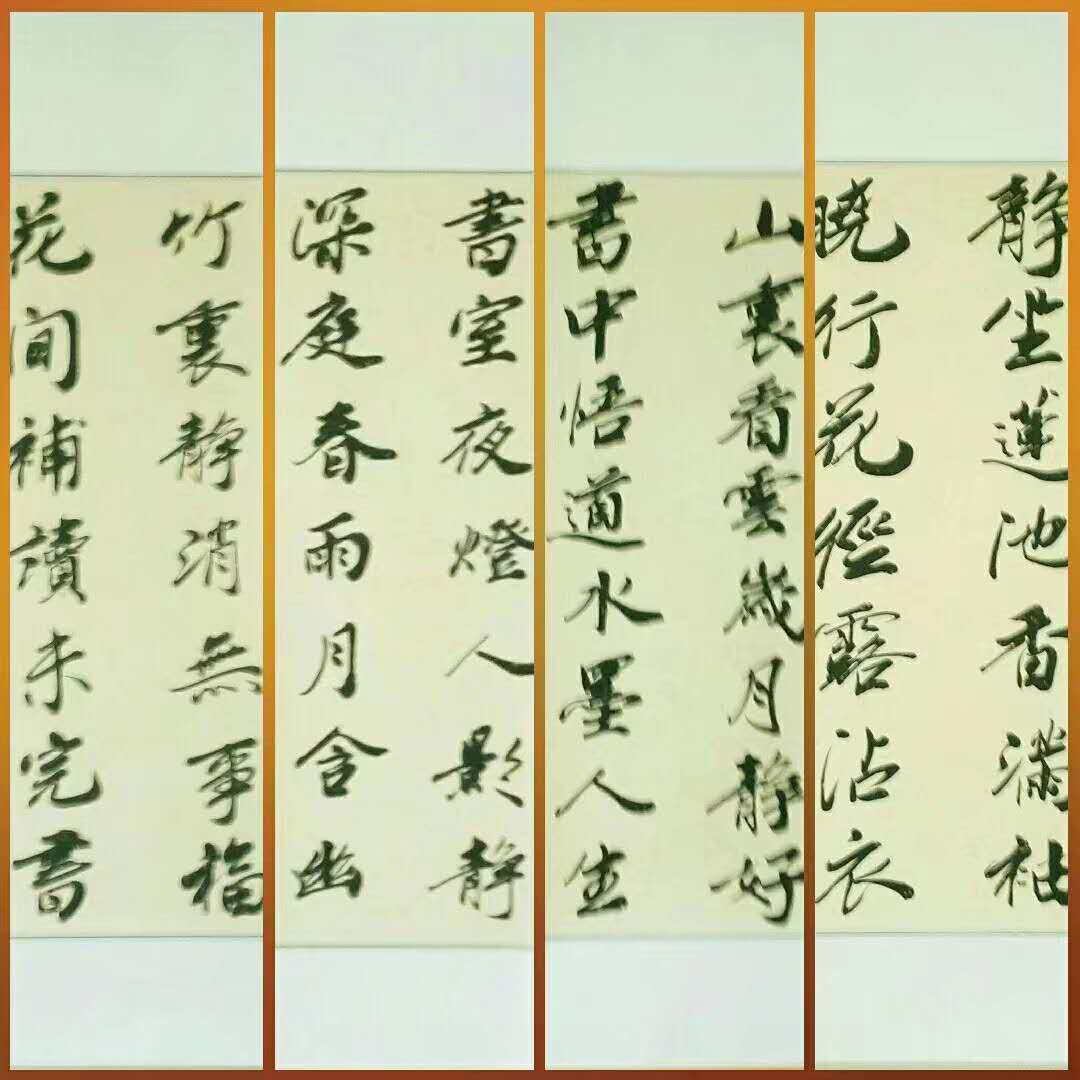 靜坐蓮池香滿袖
曉行花徑露沾衣
山裏看雲歲月靜好
書中悟道水墨人生
書室夜燈人影靜
深庭春雨月含幽
竹裏靜消無事福
花間補讀未完書